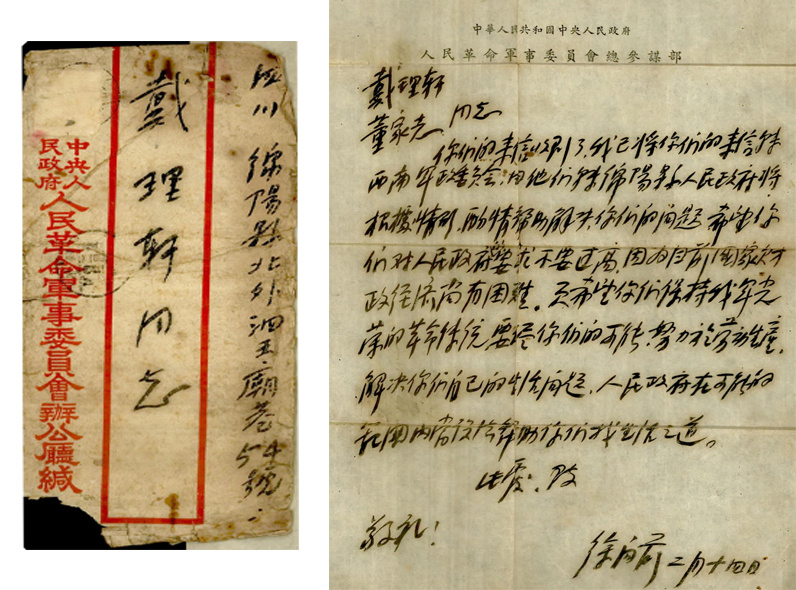 四川 綿陽县北外泗王廟巷54號
戴理轩同志
中央人
民政府
人民革命軍事委員會辦公廳緘
中華人民共和國中央人民政府
人民革命軍事委員會總參謀部
戴理轩
董家志 同志
你们的来信收到了,我已将你们的来信转
西南军政委员会,由他们转绵陽县人民政府将
根據情形,酌情帮助解决你们的问题。希望你
们对人民政府要求不要过高,因为目前國家财
政经济尚有困难。又希望你们保持我军光
荣的革命传统,要尽你们的可能,努力於劳动生產,
解决你们自己的生活问题,人民政府在可能的
范围内当设法帮助你们找生活之道。
此覆,致
敬礼!
徐向前 二月十四日